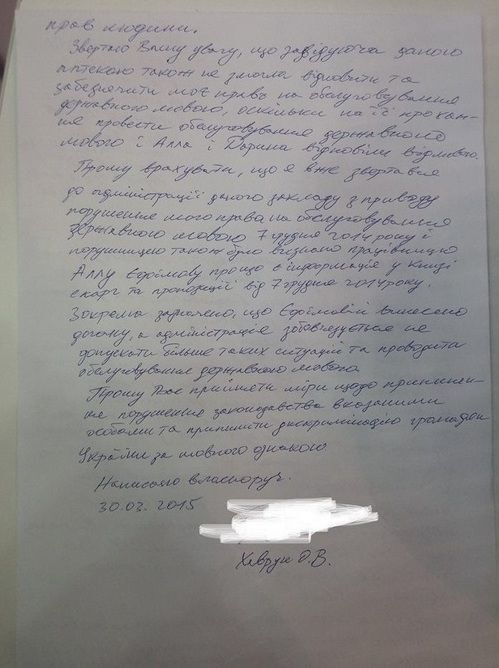 прав людини.
Звертаю Вашу увагу, що завідуюча даною
аптекою також не змогла відновити та
забезпечити моє право на обслуговування
державною мовою, оскільки на її прохан-
ня провести обслуговування державною
мовою і Алла і Дарина відповіли відмовою.
Прошу врахувати, що я вже звертався
до адміністрації даного закладу з приводу
порушення мого права на обслуговування
державною мовою 7 грудня 2014 року і
порушницею також було визнано працівницю
Аллу Єфімову про що є інформація у Книзі
скарг та пропозицій від 7 грудня 2014 року.
Зокрема зазначено, що Єфімовій винесено
догану, а адміністрація зобов'язується не
допускати більше таких ситуацій та проводити
обслуговування державною мовою.
Прошу Вас прийняти міри щодо припинен-
ня порушення законодавства вказаними
особами та припинити дискримінацію громадян
України за мовною ознакою.
Написано власноруч.
30.03.2015
О.В.